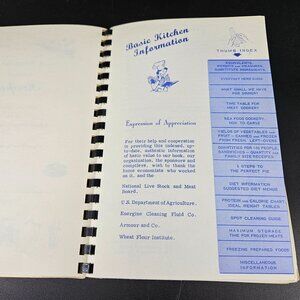 Basic Kitchen
Information
Expression of Appreciation
For their help and cooperation
in providing this indexed, up-
to-date, authentic information
of basic value to our book, our
organization, the sponsors and
compilers, wish to thank the
home economists who worked
on it, and the
National Live Stock and Meat
Board.
U.S. Department of Agriculture.
Energine Cleaning Fluid Co.
Armour and Co.
Wheat Flour Institute.
THUMB INDEX
EQUIVALENTS,
WEIGHTS AND MEASURES,
SUBSTITUTE INGREDIENTS
EVERYDAY HERB GUIDE
WHAT SHALL WE HAVE
FOR DINNER?
TIME TABLE FOR
MEAT COOKERY
SEA FOOD COOKERY,
HOW TO CARVE
YIELDS OF VEGETABLES AND
FRUIT - CANNED AND FROZEN
FROM FRESH, LEFT-OVERS
QUANTITIES FOR 100 PEOPLE,
HANDINESS QUANTITY FOR
FAMILY SIZE RECIPES
6 STEPS TO
THE PERFECT PIE
DIET INFORMATION
SUGGESTED DIET MENUS
PROTEIN AND CALORIE CHART
IDEAL WEIGHT TABLES
SPOT CLEANING GUIDE
MAXIMUM STORAGE
TIME FOR FROZEN MEATS
FREEZING PREPARED FOODS
MISCELLANEOUS
INFORMATION